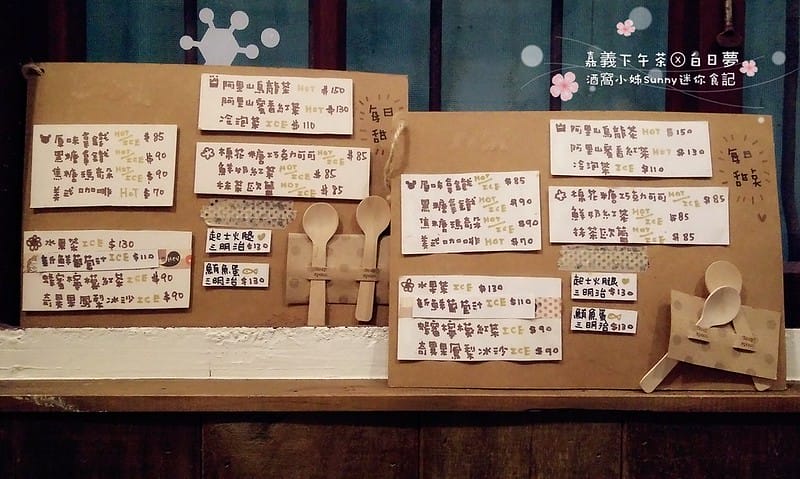 嘉義下午茶ⓧ白日夢
酒窩小姊Sunny迷你食記
阿里山烏龍茶 HOT $150
阿里山蜜香紅茶 HOT $130
冷泡茶 ICE $110
每日
甜
原味拿鐵 HOT/ICE $85
黑糖拿鐵 HOT/ICE $90
焦糖瑪奇朵 HOT/ICE $90
美式咖啡 HOT $70
棉花糖巧克力可可 HOT/ICE $85
鮮奶紅茶 HOT/ICE $85
抹茶歐蕾 HOT/ICE $85
水果茶 ICE $130
新鮮葡萄汁 ICE $110
蜂蜜檸檬紅茶 ICE $90
奇異果鳳梨冰沙 ICE $90
起士火腿
三明治 $130
鮪魚蛋
三明治 $130
阿里山烏龍茶 HOT $150
阿里山蜜香紅茶 HOT $130
冷泡茶 ICE $110
每日
甜笑
原味拿鐵 HOT/ICE $85
黑糖拿鐵 HOT/ICE $90
焦糖瑪奇朵 HOT/ICE $90
美式咖啡 HOT $70
棉花糖巧克力可可 HOT/ICE $85
鮮奶紅茶 HOT/ICE $85
抹茶歐蕾 HOT/ICE $85
水果茶 ICE $130
新鮮葡萄汁 ICE $110
蜂蜜檸檬紅茶 ICE $90
奇異果鳳梨冰沙 ICE $90
起士火腿
三明治 $130
鮪魚蛋
三明治 $130